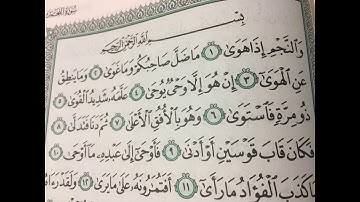 سورة النجم
بِسْمِ ٱللَّهِ ٱلرَّحْمَٰنِ ٱلرَّحِيمِ
وَٱلنَّجْمِ إِذَا هَوَىٰ ١ مَا ضَلَّ صَاحِبُكُمْ وَمَا غَوَىٰ ٢ وَمَا يَنطِقُ
عَنِ ٱلْهَوَىٰ ٣ إِنْ هُوَ إِلَّا وَحْىٌ يُوحَىٰ ٤ عَلَّمَهُۥ شَدِيدُ ٱلْقُوَىٰ ٥
ذُو مِرَّةٍ فَٱسْتَوَىٰ ٦ وَهُوَ بِٱلْأُفُقِ ٱلْأَعْلَىٰ ٧ ثُمَّ دَنَا فَتَدَلَّىٰ ٨
فَكَانَ قَابَ قَوْسَيْنِ أَوْ أَدْنَىٰ ٩ فَأَوْحَىٰٓ إِلَىٰ عَبْدِهِۦ مَآ أَوْحَىٰ ١٠
مَا كَذَبَ ٱلْفُؤَادُ مَا رَأَىٰٓ ١١ أَفَتُمَٰرُونَهُۥ عَلَىٰ مَا يَرَىٰ ١٢ وَلَقَدْ رَءَاهُ